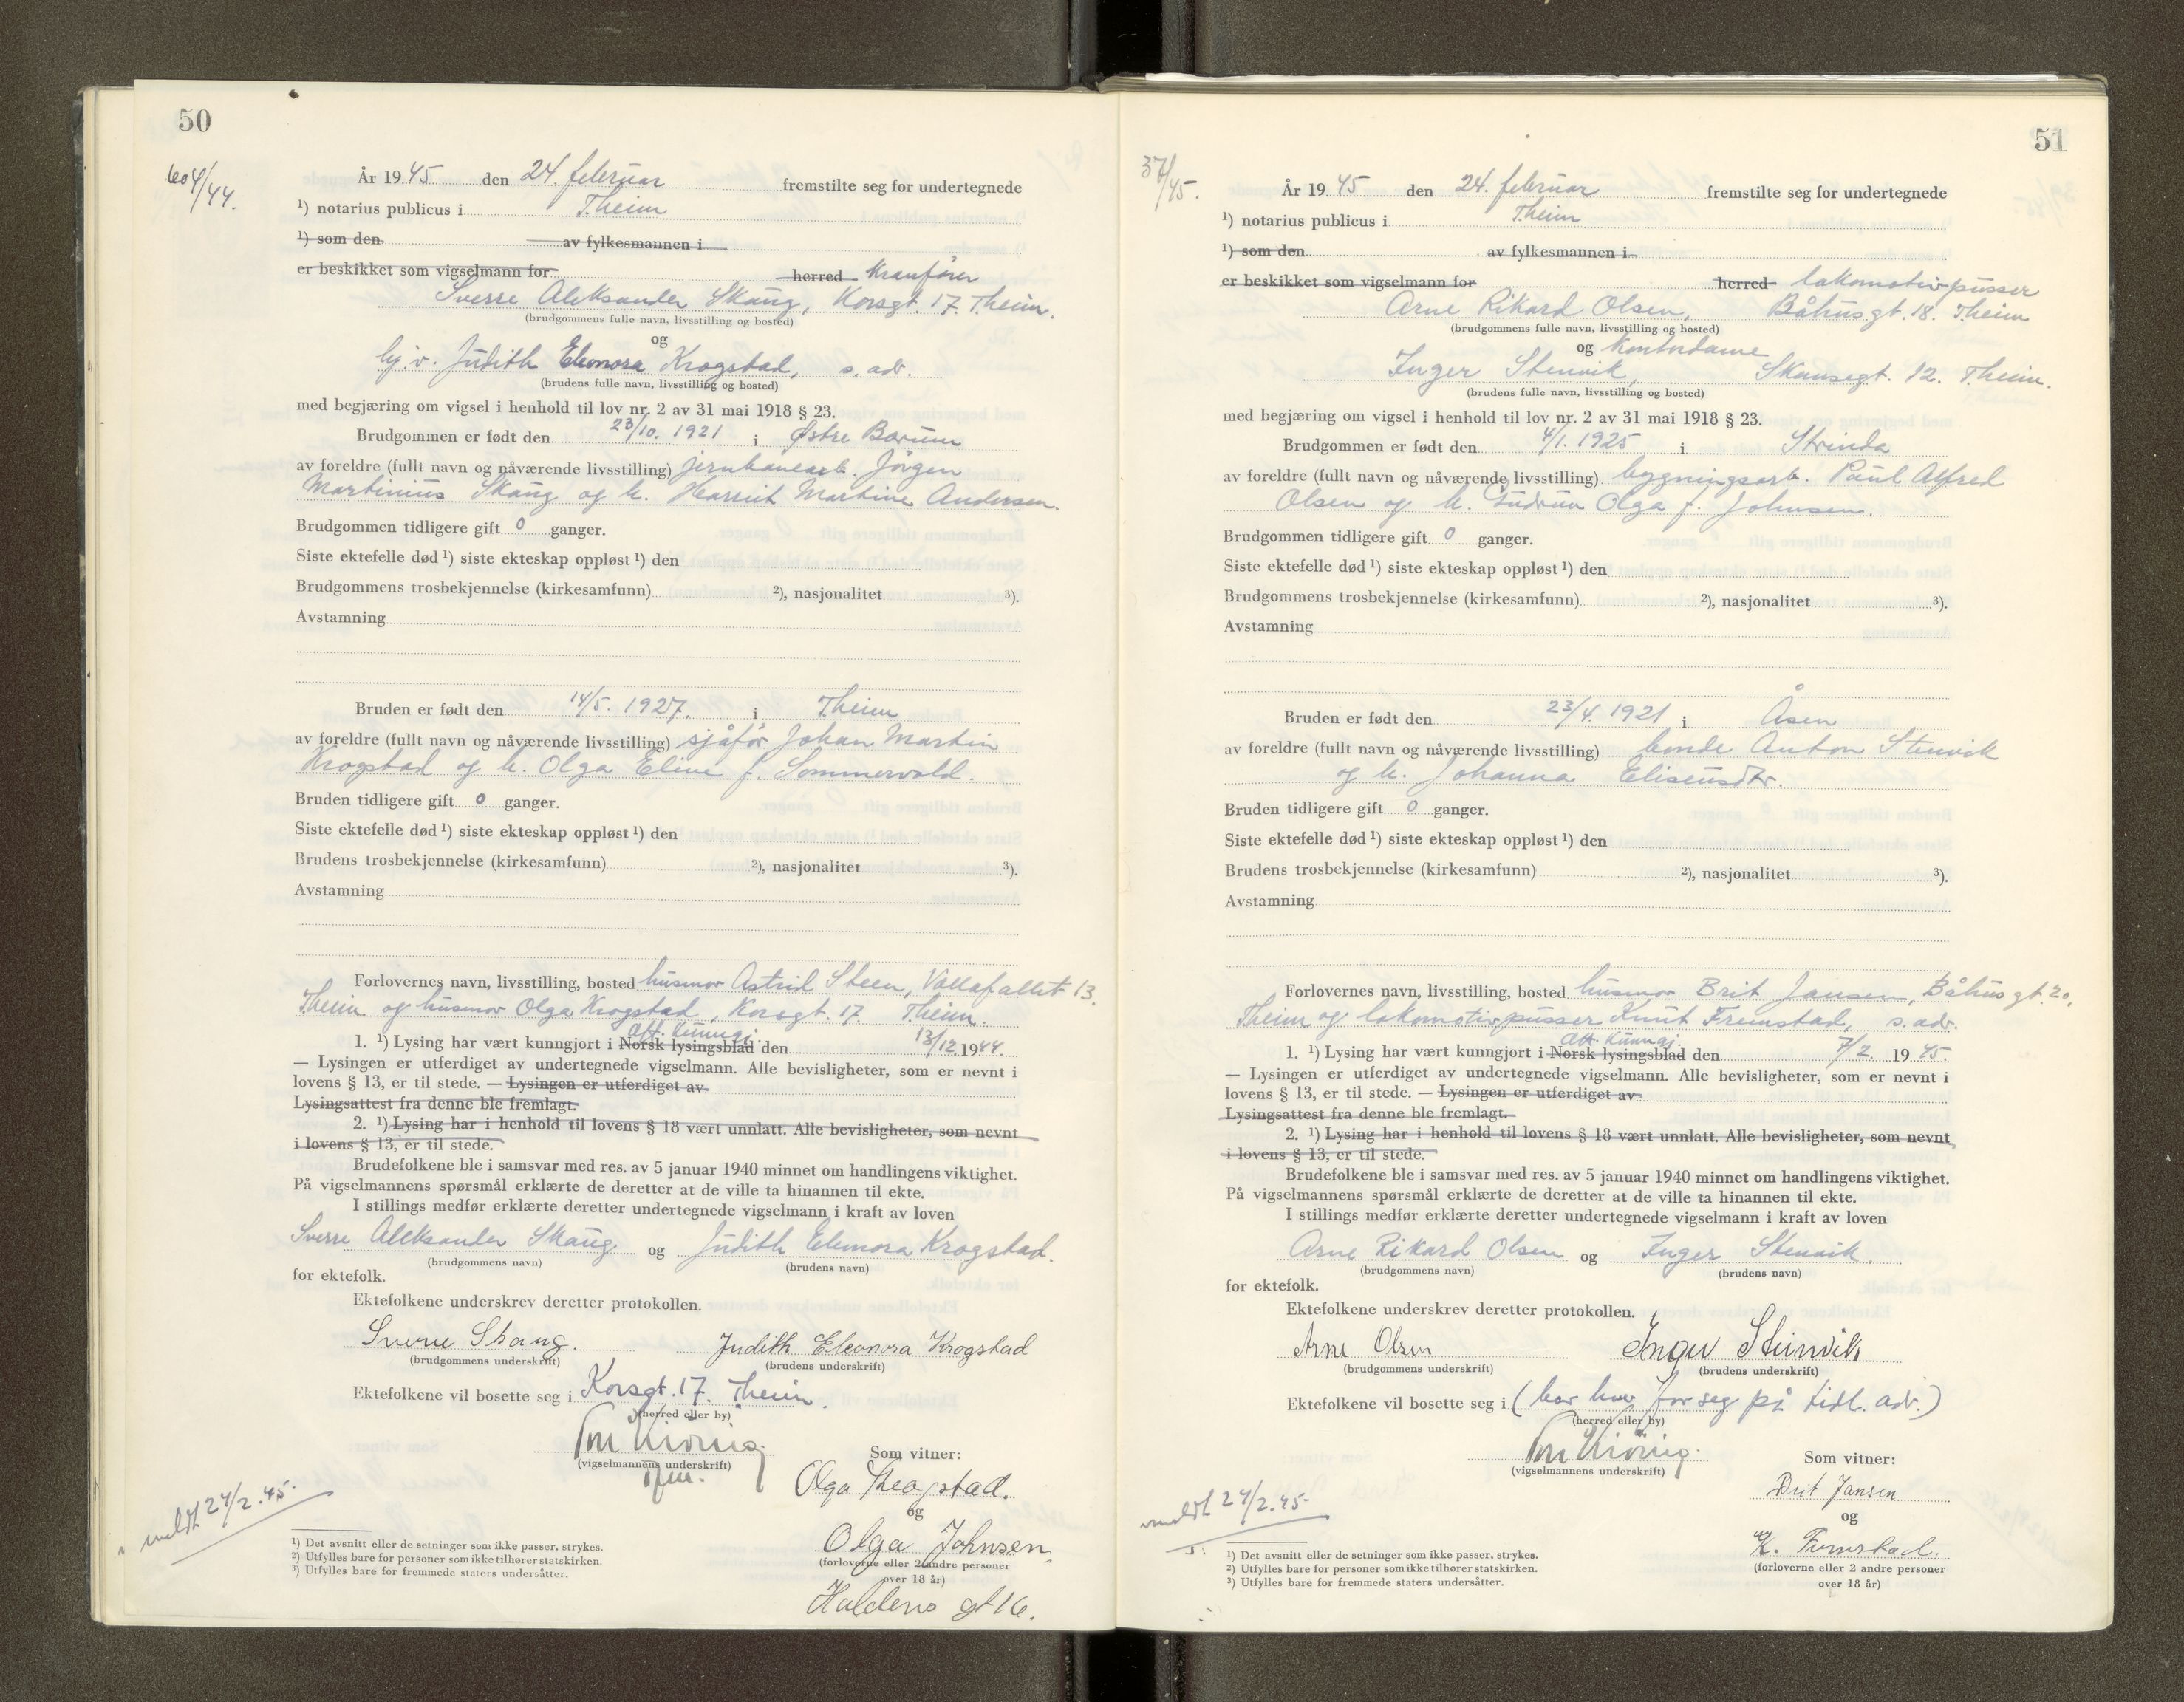 50
604/44.
År 1945 den 24. februar fremstilte seg for undertegnede
¹) notarius publicus i T.heim
¹) som den av fylkesmannen i
er beskikket som vigselmann for herred Kranfører
Sverre Aleksander Skaug, Korsgt. 17. T.heim.
(brudgommens fulle navn, livsstilling og bosted)
og
hj.v. Judith Eleonora Krogstad, s. adr.
(brudens fulle navn, livsstilling og bosted)
med begjæring om vigsel i henhold til lov nr. 2 av 31 mai 1918 § 23.
Brudgommen er født den 23/10. 1921 i Østre Bærum
av foreldre (fullt navn og nåværende livsstilling) jernbanearb. Jörgen
Martinius Skaug og h. Harriet Martine Andersen.
Brudgommen tidligere gift 0 ganger.
Siste ektefelle død ¹) siste ekteskap oppløst ¹) den
Brudgommens trosbekjennelse (kirkesamfunn) ²), nasjonalitet ³).
Avstamning
Bruden er født den 14/5. 1927. i T.heim
av foreldre (fullt navn og nåværende livsstilling) sjåfør Johan Martin
Krogstad og h. Olga Eline f. Sommervold.
Bruden tidligere gift 0 ganger.
Siste ektefelle død ¹) siste ekteskap oppløst ¹) den
Brudens trosbekjennelse (kirkesamfunn) ²), nasjonalitet ³).
Avstamning
Forlovernes navn, livsstilling, bosted husmor Astrid Steen, Vollafallet 13.
T.heim og husmor Olga Krogstad, Korsgt. 17. T.heim.
Off. kunngj.
1. ¹) Lysing har vært kunngjort i Norsk lysingsblad den 13/12. 1944.
— Lysingen er utferdiget av undertegnede vigselmann. Alle bevisligheter, som er nevnt i
lovens § 13, er til stede. — Lysingen er utferdiget av
Lysingsattest fra denne ble fremlagt.
2. ¹) Lysing har i henhold til lovens § 18 vært unnlatt. Alle bevisligheter, som nevnt
i lovens § 13, er til stede.
Brudefolkene ble i samsvar med res. av 5 januar 1940 minnet om handlingens viktighet.
På vigselmannens spørsmål erklærte de deretter at de ville ta hinannen til ekte.
I stillings medfør erklærte deretter undertegnede vigselmann i kraft av loven
Sverre Aleksander Skaug og Judith Eleonora Krogstad.
(brudgommens navn) (brudens navn)
for ektefolk.
Ektefolkene underskrev deretter protokollen.
Sverre Skaug. Judith Eleonora Krogstad
(brudgommens underskrift) (brudens underskrift)
Ektefolkene vil bosette seg i Korsgt. 17. T.heim.
(herred eller by)
Som vitner:
(vigselmannens underskrift)
Olga Krogstad.
og
Olga Johnsen
(forloverne eller 2 andre personer
over 18 år)
Haldens gt 16.
meldt 24/2.45.
¹) Det avsnitt eller de setninger som ikke passer, strykes.
²) Utfylles bare for personer som ikke tilhører statskirken.
³) Utfylles bare for fremmede staters undersåtter.
51
37/45.
År 1945 den 24. februar fremstilte seg for undertegnede
¹) notarius publicus i T.heim
¹) som den av fylkesmannen i
er beskikket som vigselmann for herred lokomotivpusser
Arne Rikard Olsen, Båhusgt. 18. T.heim
(brudgommens fulle navn, livsstilling og bosted)
og Kontordame
Inger Stenvik, Skansegt. 12. T.heim.
(brudens fulle navn, livsstilling og bosted)
med begjæring om vigsel i henhold til lov nr. 2 av 31 mai 1918 § 23.
Brudgommen er født den 4/1. 1925 i Strinda
av foreldre (fullt navn og nåværende livsstilling) bygningsarb. Paul Alfred
Olsen og h. Gudrun Olga f. Johnsen.
Brudgommen tidligere gift 0 ganger.
Siste ektefelle død ¹) siste ekteskap oppløst ¹) den
Brudgommens trosbekjennelse (kirkesamfunn) ²), nasjonalitet ³).
Avstamning
Bruden er født den 23/4. 1921 i Åsen
av foreldre (fullt navn og nåværende livsstilling) bonde Anton Stenvik
og h. Johanna Eliseusdtr.
Bruden tidligere gift 0 ganger.
Siste ektefelle død ¹) siste ekteskap oppløst ¹) den
Brudens trosbekjennelse (kirkesamfunn) ²), nasjonalitet ³).
Avstamning
Forlovernes navn, livsstilling, bosted husmor Brit Jansen, Båhusgt. 20,
T.heim og lokomotivpusser Knut Fremstad, s. adr.
Off. kunngj.
1. ¹) Lysing har vært kunngjort i Norsk lysingsblad den 7/2. 1945.
— Lysingen er utferdiget av undertegnede vigselmann. Alle bevisligheter, som er nevnt i
lovens § 13, er til stede. — Lysingen er utferdiget av
Lysingsattest fra denne ble fremlagt.
2. ¹) Lysing har i henhold til lovens § 18 vært unnlatt. Alle bevisligheter, som nevnt
i lovens § 13, er til stede.
Brudefolkene ble i samsvar med res. av 5 januar 1940 minnet om handlingens viktighet.
På vigselmannens spørsmål erklærte de deretter at de ville ta hinannen til ekte.
I stillings medfør erklærte deretter undertegnede vigselmann i kraft av loven
Arne Rikard Olsen og Inger Stenvik.
(brudgommens navn) (brudens navn)
for ektefolk.
Ektefolkene underskrev deretter protokollen.
Arne Olsen Inger Steinvik
(brudgommens underskrift) (brudens underskrift)
Ektefolkene vil bosette seg i (bor hver for seg på tidl. adr.)
(herred eller by)
Som vitner:
(vigselmannens underskrift)
Brit Jansen
og
K. Fremstad.
(forloverne eller 2 andre personer
over 18 år)
meldt 24/2.45.
¹) Det avsnitt eller de setninger som ikke passer, strykes.
²) Utfylles bare for personer som ikke tilhører statskirken.
³) Utfylles bare for fremmede staters undersåtter.